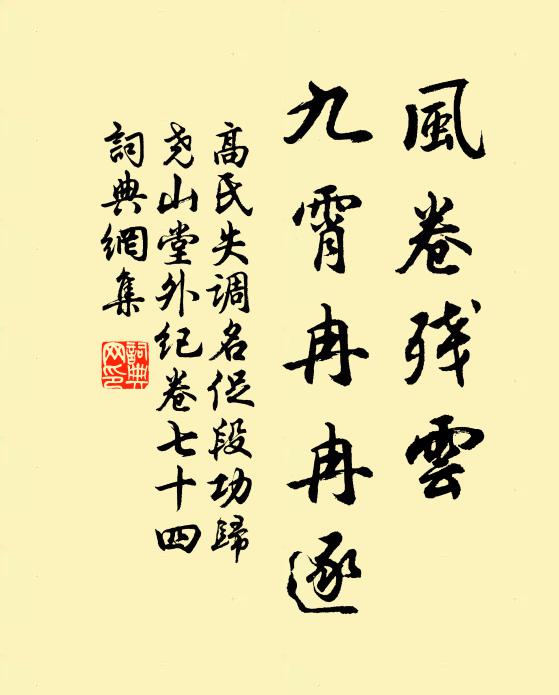 風卷殘雲
九霄冉冉逐
高氏失調名促段功歸
尧山堂外纪卷七十四
詞典網集
詞典网印